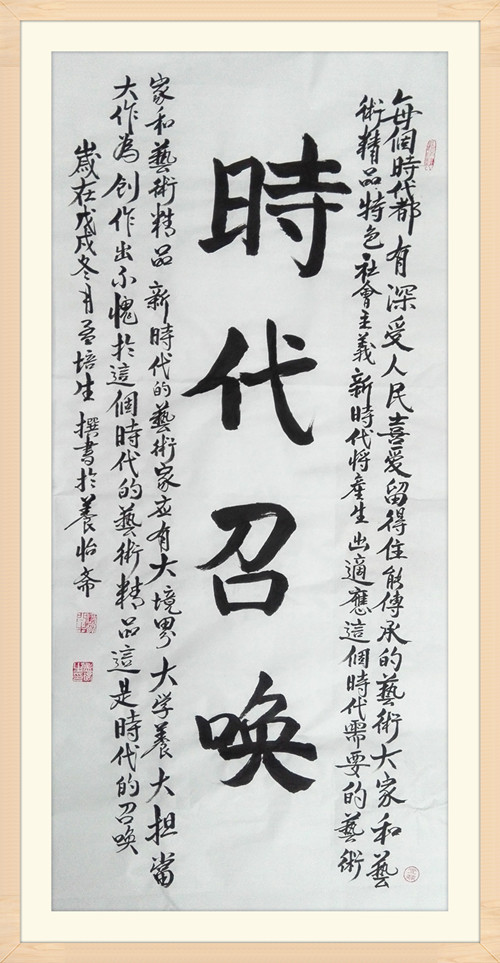 每個時代都有深受人民喜愛留得住能傳承的藝術大家和藝
術精品特色社會主義新時代將產生出適應這個時代需要的藝術
時代召唤
家和藝術精品新時代的藝術家應有大境界大学養大担當
大作為創作出不愧於這個時代的藝術精品這是時代的召唤
歲在戊戌冬月孟培生撰書於養怡斋